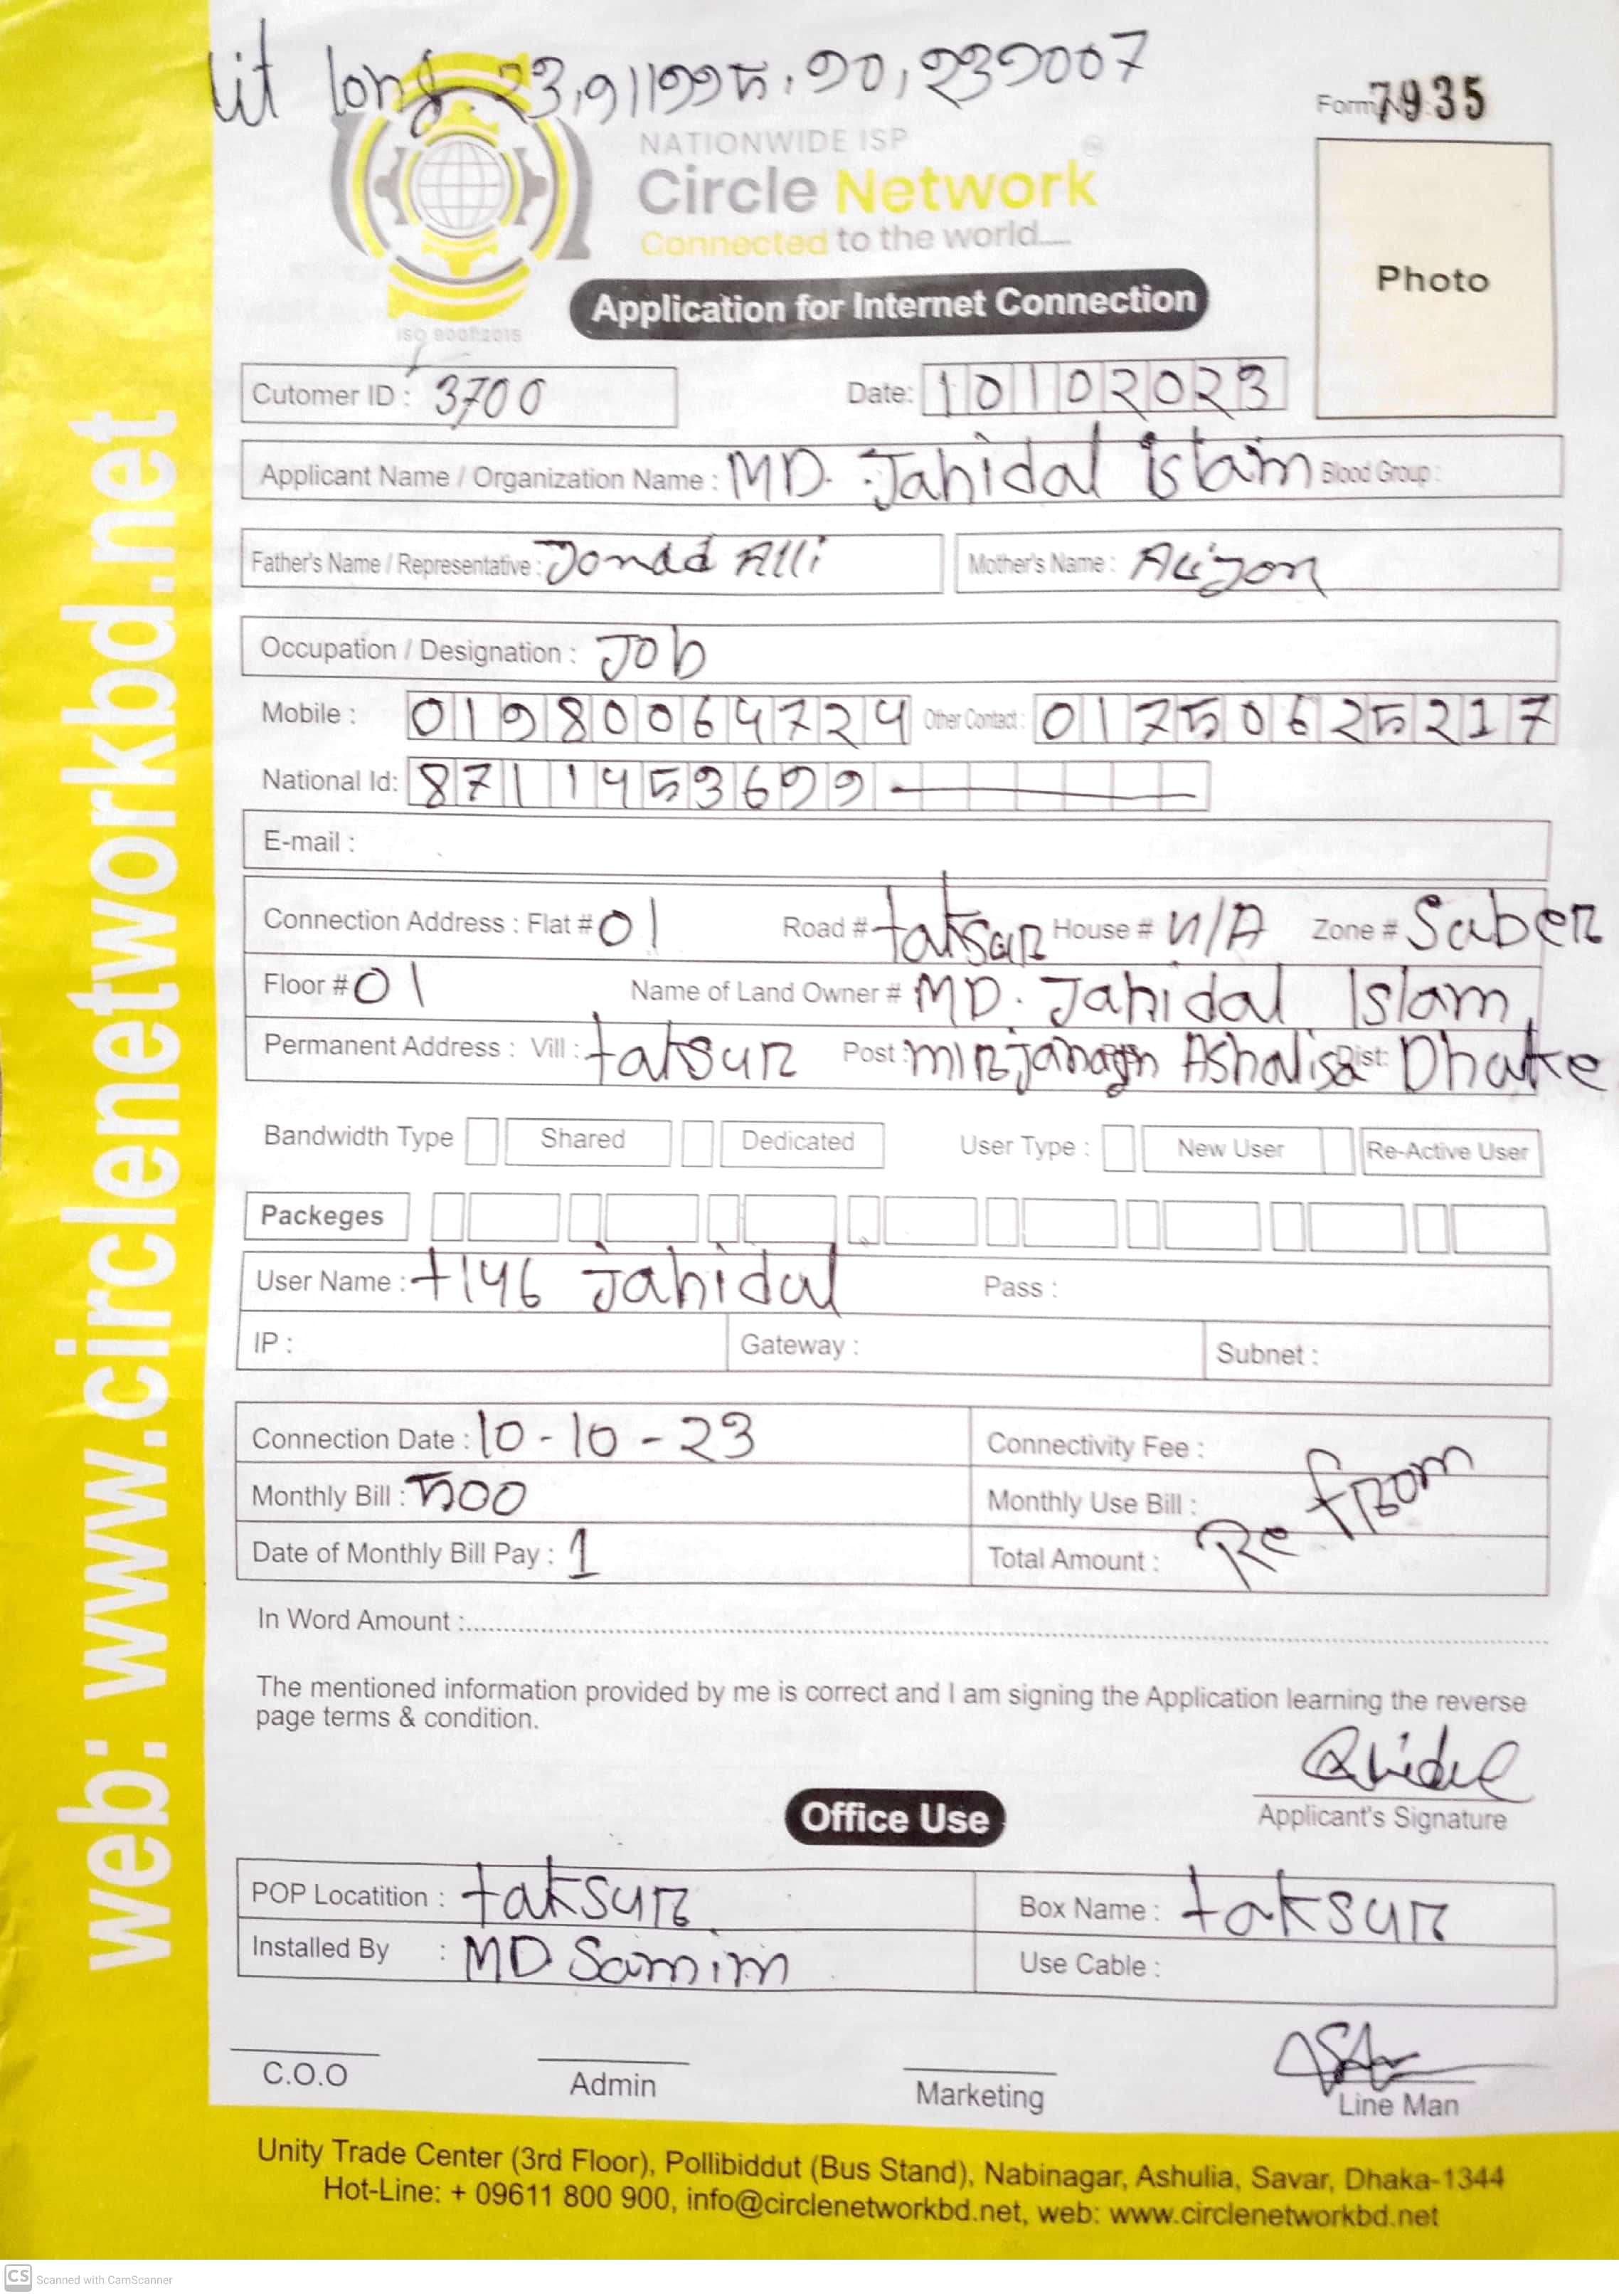 lit long. 23,911995,90,239007
Form 7935
NATIONWIDE ISP
Circle Network
Connected to the world....
ISO 9001:2015
Photo
Application for Internet Connection
Cutomer ID : 3700 Date: 10102023
Applicant Name / Organization Name : MD. Jahidal islam Blood Group :
Father's Name / Representative : Jonad Alli Mother's Name :
Occupation / Designation : Job
Mobile : 01980064724 Other Contact : 01750625217
National Id: 8711453699
E-mail :
Connection Address : Flat # 01 Road # taksur House # N/A Zone # Saber
Floor # 01 Name of Land Owner # MD. Jahidal Islam
Permanent Address : Vill : taksur Post : Dist: Dhake
Bandwidth Type Shared Dedicated User Type : New User Re-Active User
Packeges
User Name : t146 Jahidul Pass :
IP : Gateway : Subnet :
Connection Date : 10-10-23 Connectivity Fee :
Monthly Bill : 500 Monthly Use Bill :
Date of Monthly Bill Pay : 1 Total Amount :
Re from
In Word Amount :
The mentioned information provided by me is correct and I am signing the Application learning the reverse
page terms & condition.
Applicant's Signature
Office Use
POP Locatition : taksur Box Name : taksur
Installed By : MD Samim Use Cable :
C.O.O Admin Marketing Line Man
Unity Trade Center (3rd Floor), Pollibiddut (Bus Stand), Nabinagar, Ashulia, Savar, Dhaka-1344
Hot-Line: + 09611 800 900, info@circlenetworkbd.net, web: www.circlenetworkbd.net
web: www.circlenetworkbd.net
CS Scanned with CamScanner